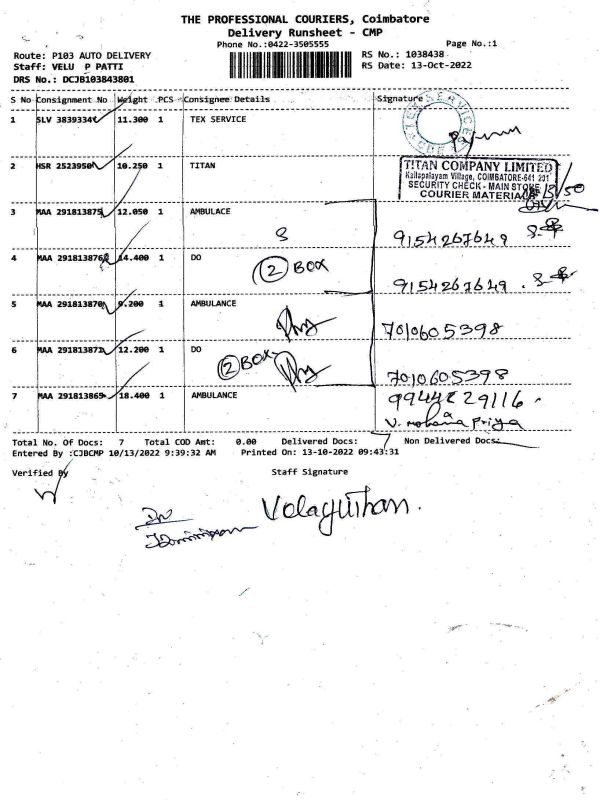 THE PROFESSIONAL COURIERS, Coimbatore
Delivery Runsheet - CMP
Phone No.:0422-3505555
Page No.:1
Route: P103 AUTO DELIVERY
RS No.: 1038438
Staff: VELU P PATTI
RS Date: 13-Oct-2022
DRS No.: DCJB103843801
S No Consignment No Weight PCS Consignee Details Signature
1 SLV 3839334 11.300 1 TEX SERVICE
TEX SERVICE
2 HSR 2523950 10.250 1 TITAN
TITAN COMPANY LIMITED
Kallapalayam Village, COIMBATORE-641 201
SECURITY CHECK - MAIN STORE
COURIER MATERIAL
3 MAA 291813875 12.050 1 AMBULACE
S 9154267649
4 MAA 291813876 14.400 1 DO
2 BOX
9154267649
5 MAA 291813870 9.200 1 AMBULANCE
7010605398
6 MAA 291813871 12.200 1 DO
2 BOX
7010605398
7 MAA 291813869 18.400 1 AMBULANCE
9944229116
V. mohana Priya
Total No. Of Docs: 7 Total COD Amt: 0.00 Delivered Docs: 7 Non Delivered Docs:
Entered By :CJBCMP 10/13/2022 9:39:32 AM Printed On: 13-10-2022 09:43:31
Verified By Staff Signature